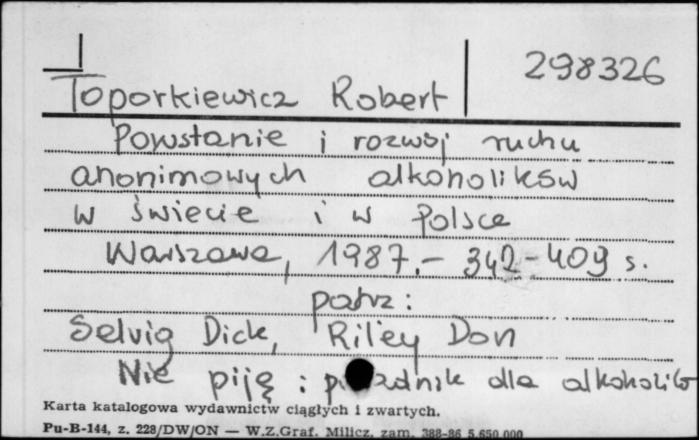 298326
Toporkiewicz Robert
Powstanie i rozwój ruchu
anonimowych alkoholików
w świecie i w Polsce
Warszawa, 1987.- 342-409 s.
patrz:
Selvig Dick, Riley Don
Nie piję : dla
Karta katalogowa wydawnictw ciągłych i zwartych.
Pu-B-144, z. 228/DW/ON — W.Z.Graf. Milicz, zam. 388-86 5.650.000